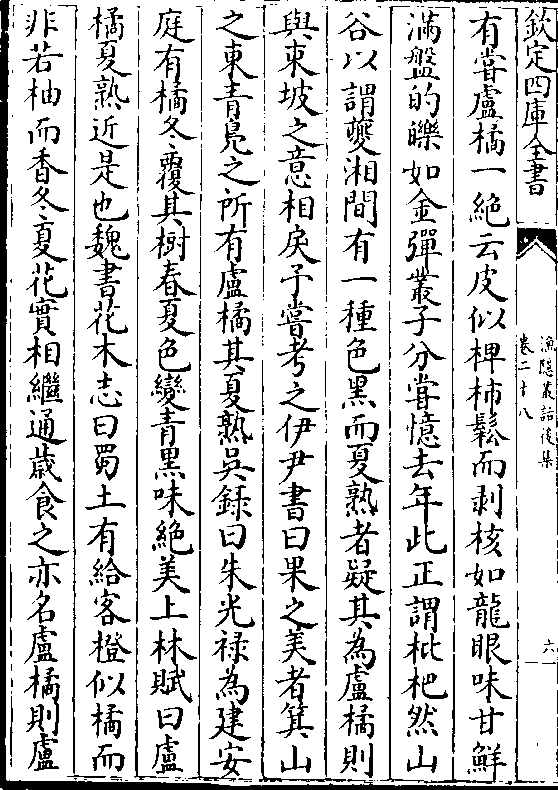 欽定四庫全書
漁隱叢話後集
卷二十八
六
有嘗盧橘一絶云皮似椑柿鬆而剥核如龍眼味甘鮮
滿盤的皪如金彈叢子分嘗憶去年此正謂枇杷然山
谷以謂夔湘間有一種色黑而夏熟者疑其為盧橘則
與東坡之意相戾予嘗考之伊尹書曰果之美者箕山
之東青鳧之所有盧橘其夏熟吳録曰朱光禄為建安
庭有橘冬覆其樹春夏色變青黑味絶美上林賦曰盧
橘夏熟近是也魏書花木志曰蜀土有給客橙似橘而
非若柚而香冬夏花實相繼通歲食之亦名盧橘則盧